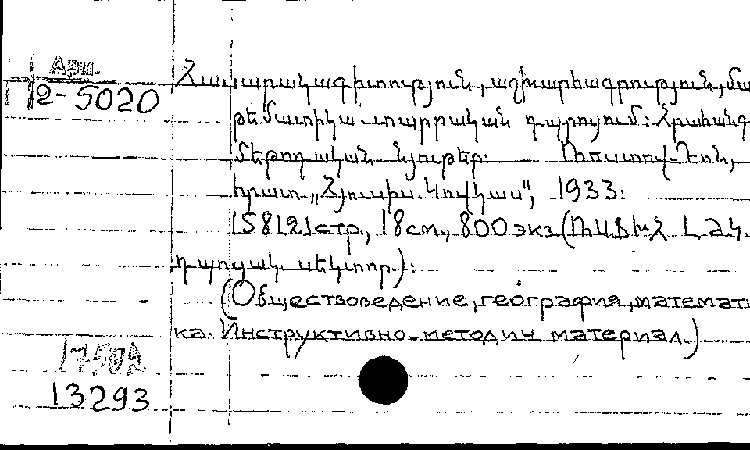 Арм.
2-5020
Հասարակագիտություն, աշխարհագրություն, մա
թեմատիկա տարրական դպրոցում: Հրահանգ
մեթոդական նյութեր: Ռոստով-Դոն,
հրատ. „Հյուսիս. Կովկաս", 1933:
158[2] стр, 18 см, 800 экз.
դպրոցակ. սեկտոր):
(Обществоведение, география, математи
ка. Инструктивно-методич материал.)
13293